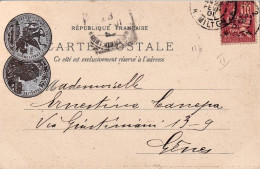 RÉPUBLIQUE FRANÇAISE
CARTE POSTALE
Ce côté est exclusivement réservé à l'adresse
Mademoiselle
Ernestina Canepa
Via Giustiniani 13-9
Gênes